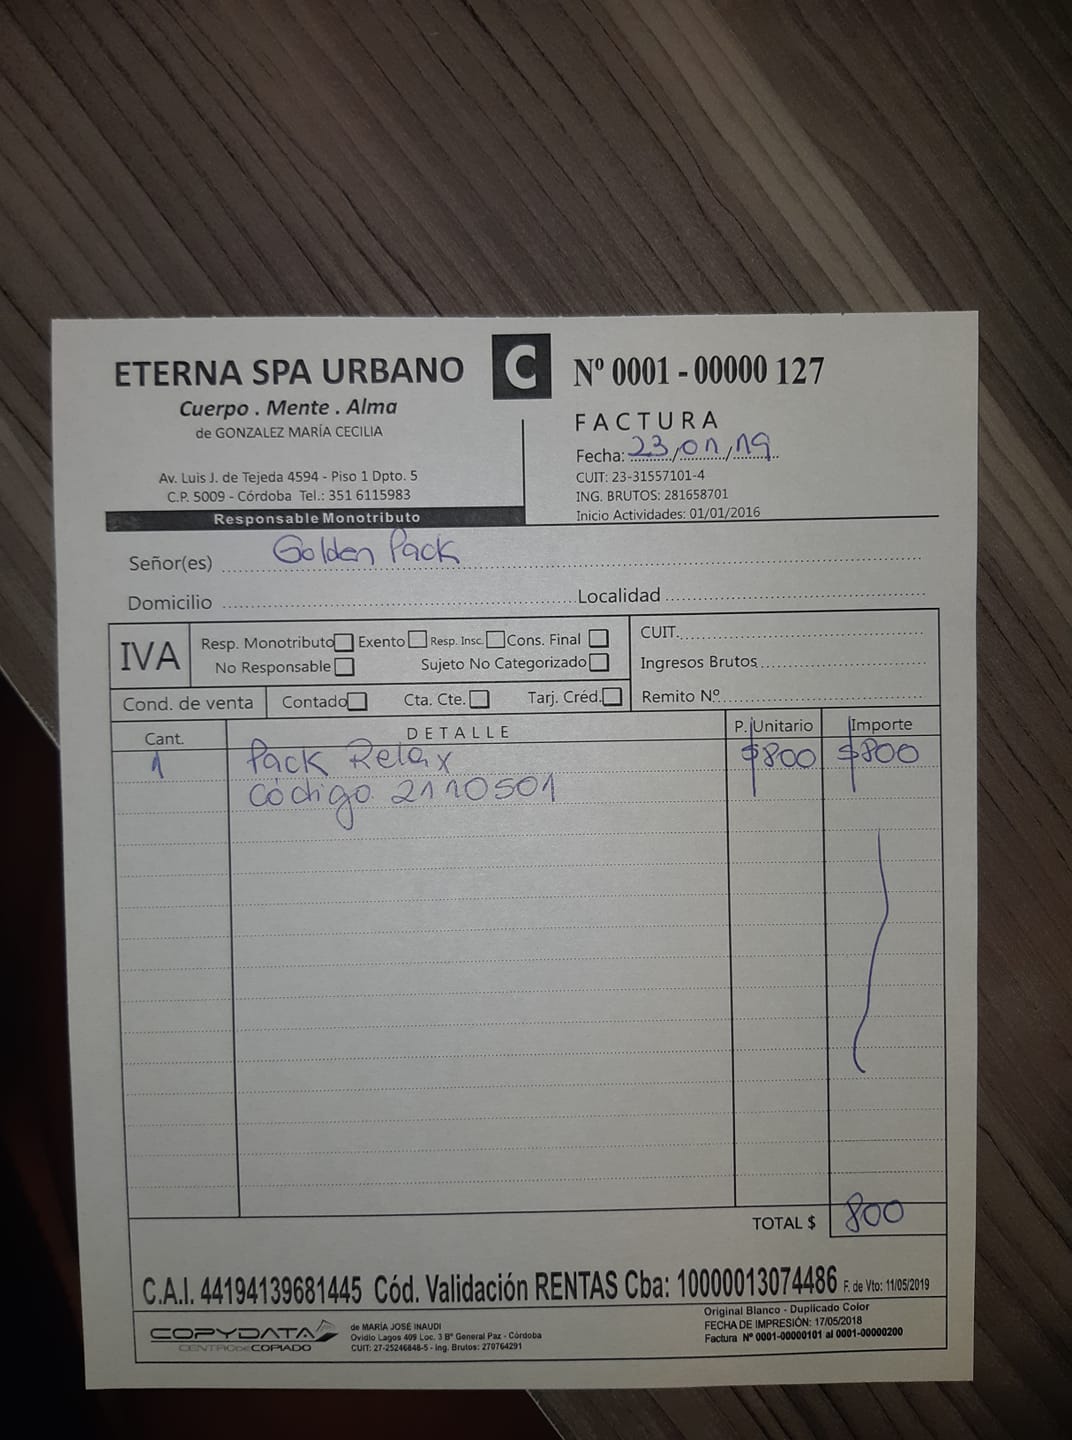 ETERNA SPA URBANO
Cuerpo . Mente . Alma
de GONZALEZ MARÍA CECILIA
Av. Luis J. de Tejeda 4594 - Piso 1 Dpto. 5
C.P. 5009 - Córdoba Tel.: 351 6115983
Responsable Monotributo
C
Nº 0001 - 00000 127
FACTURA
Fecha: 23/01/19
CUIT: 23-31557101-4
ING. BRUTOS: 281658701
Inicio Actividades: 01/01/2016
Señor(es) Golden Pack
Domicilio Localidad
IVA
Resp. Monotributo Exento Resp. Insc. Cons. Final
No Responsable Sujeto No Categorizado
CUIT.
Ingresos Brutos
Cond. de venta Contado Cta. Cte. Tarj. Créd. Remito Nº
Cant. DETALLE P. Unitario Importe
1 Pack Relax $800 $800
Código 2110501
TOTAL $ 800
C.A.I. 44194139681445 Cód. Validación RENTAS Cba: 10000013074486 F. de Vto: 11/05/2019
COPYDATA
CENTRO DE COPIADO
de MARÍA JOSÉ INAUDI
Ovidio Lagos 409 Loc. 3 Bº General Paz - Córdoba
CUIT: 27-25246848-5 - Ing. Brutos: 270764291
Original Blanco - Duplicado Color
FECHA DE IMPRESIÓN: 17/05/2018
Factura Nº 0001-00000101 al 0001-00000200